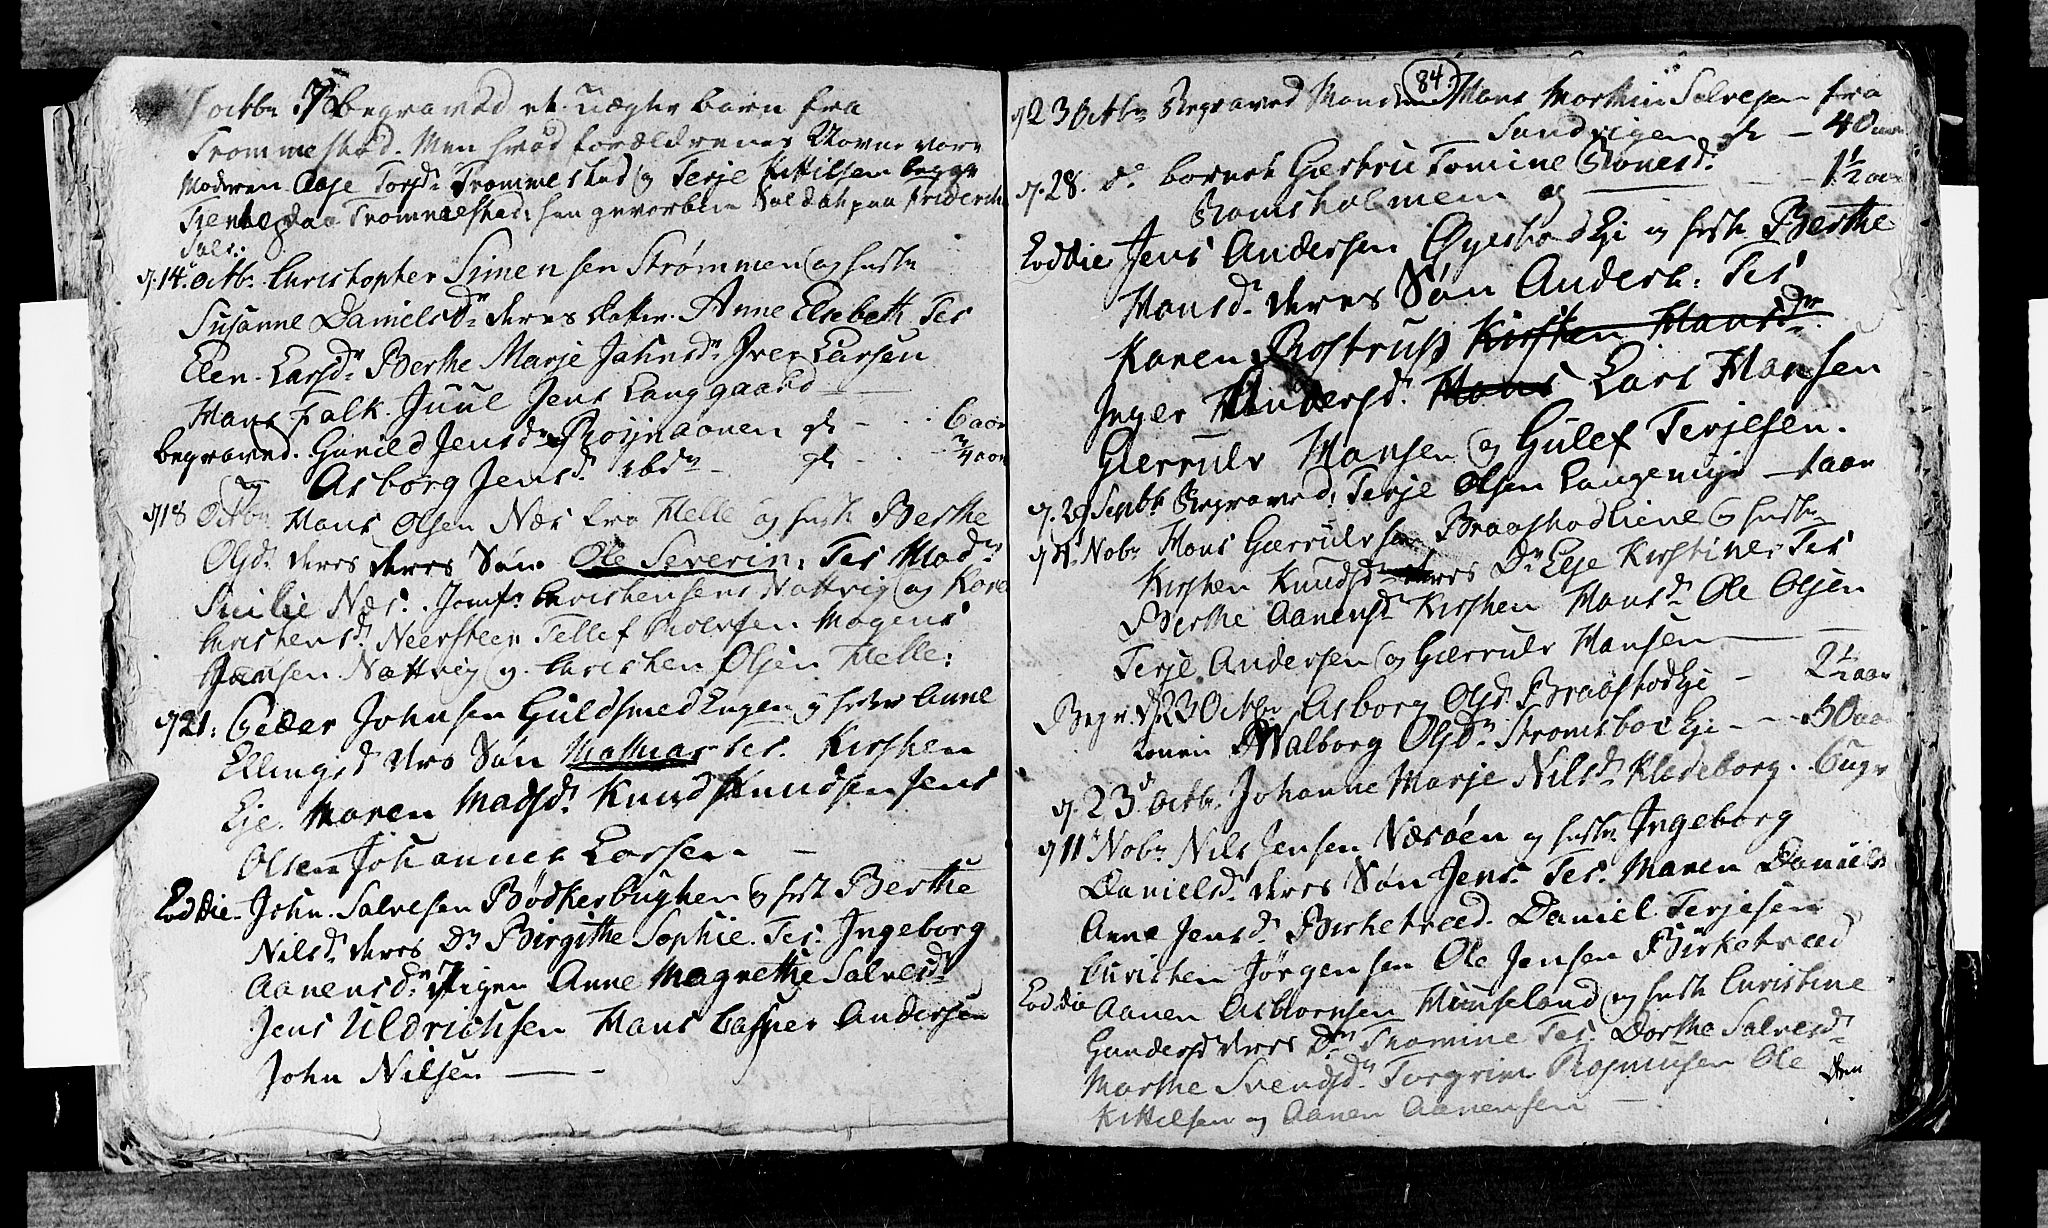 7 octbr begraved et uægte barn fra
Trommestad. Men hvad forældrenes Navne vare
Moderen Aase Torsd. Trommestad og Terje Kittilsen begge
Tiente paa Trommestad: han geverben Soldat paa Friderich
d. 14. octbr. Christopher Simensen Strømmen og hustr
Susanne Danielsdr deres datter. Anne Elsebeth Tes
Elen Larsdr Berthe Marje Jahnsdr Iver Larsen
Hans Falk Juul Jens Langgaard
begraved. Gunild Jensdr Rosjnaanen gl - 6 aar
Asborg Jensd. ibdm gl - 3/4 aar
d 18 Octbr Hans Olsen Næs fra Helle og hustr Berthe
Olsd. deres deres Søn Ole Severin. Tes Mad.
Sicilie Næs. Jomf. Christensens Nattvig og Karen
Christensd. Neersteen Tellef Roersen Mogens
Jansen Nattvig og Christen Olsen Helle:
d 21: Peder Johnsen Guldsmedengen og hustr Anne
Ellingsd deres Søn Mathias Tes. Kirsten
Eje. Maren Madsd. Knud Knudsen Jens
Olsen Johannes Larsen
Eoddie John Salvesen Bødkerbughen og hust Berthe
Nilsd. deres Dr Birgithe Sophie. Tes. Ingeborg
Aanensdr Pigen Anne Magrethe Salvesdr
Jens Uldrichsen Hans Casper Andersen
John Nilsen
84.
d 23 Octbr Begraved Manden Hans Morthen Salvesen fra
Sandvigen gl - 40 aar
d. 28. do barnet Giertru Tomine Ronesd.
Ramsholmen og - 1 1/2 aar
Eoddie Jens Andersen Øyestad Eje og hustr Berthe
Hansdr deres Søn Anders: Tes
Karen Rostrup Kirsten Hansdr
Inger Andersd. Hans Lars Hansen
Gierruls Hansen og Gulef Terjesen.
d. 29 Sepbr Begraved: Terje Olsen Langemyr - 1 aar
d 4. Nobr Hans Gierrulvsen Braastad Liene og hustr
Kirsten Knudsd deres Dr Elje Kirstine Tes
Berthe Aanensd Kirsten Hansdr Ole Olsen
Terje Andersen og Gierrulv Hansen
Begr. d 23 Octbr Asborg Olsd Braastad Eje - 2 1/2 aar
konen Walborg Olsdr Strømsboe Eje - 50 aar
d. 23 d octbr. Johanne Marje Nilsdr Klodeborg. 6 uger
d 11 Nobr Nils Jensen Næsøen og hustr Ingeborg
Danielsdr deres Søn Jens. Tes. Maren Daniels
Anne Jensdr Birketvæd. Daniel Terjesen
Christen Jørgensen Ole Jensen Birketvæd
Eoddie Aanen Asbiornsen Hunseland og hustr Christine
Gundersd deres Dr Thomine Tes. Dorthe Salvesdr
Marthe Svendsdr Torgrim Rasmusen Ole
Kittilsen og Aanen Aanensen
den